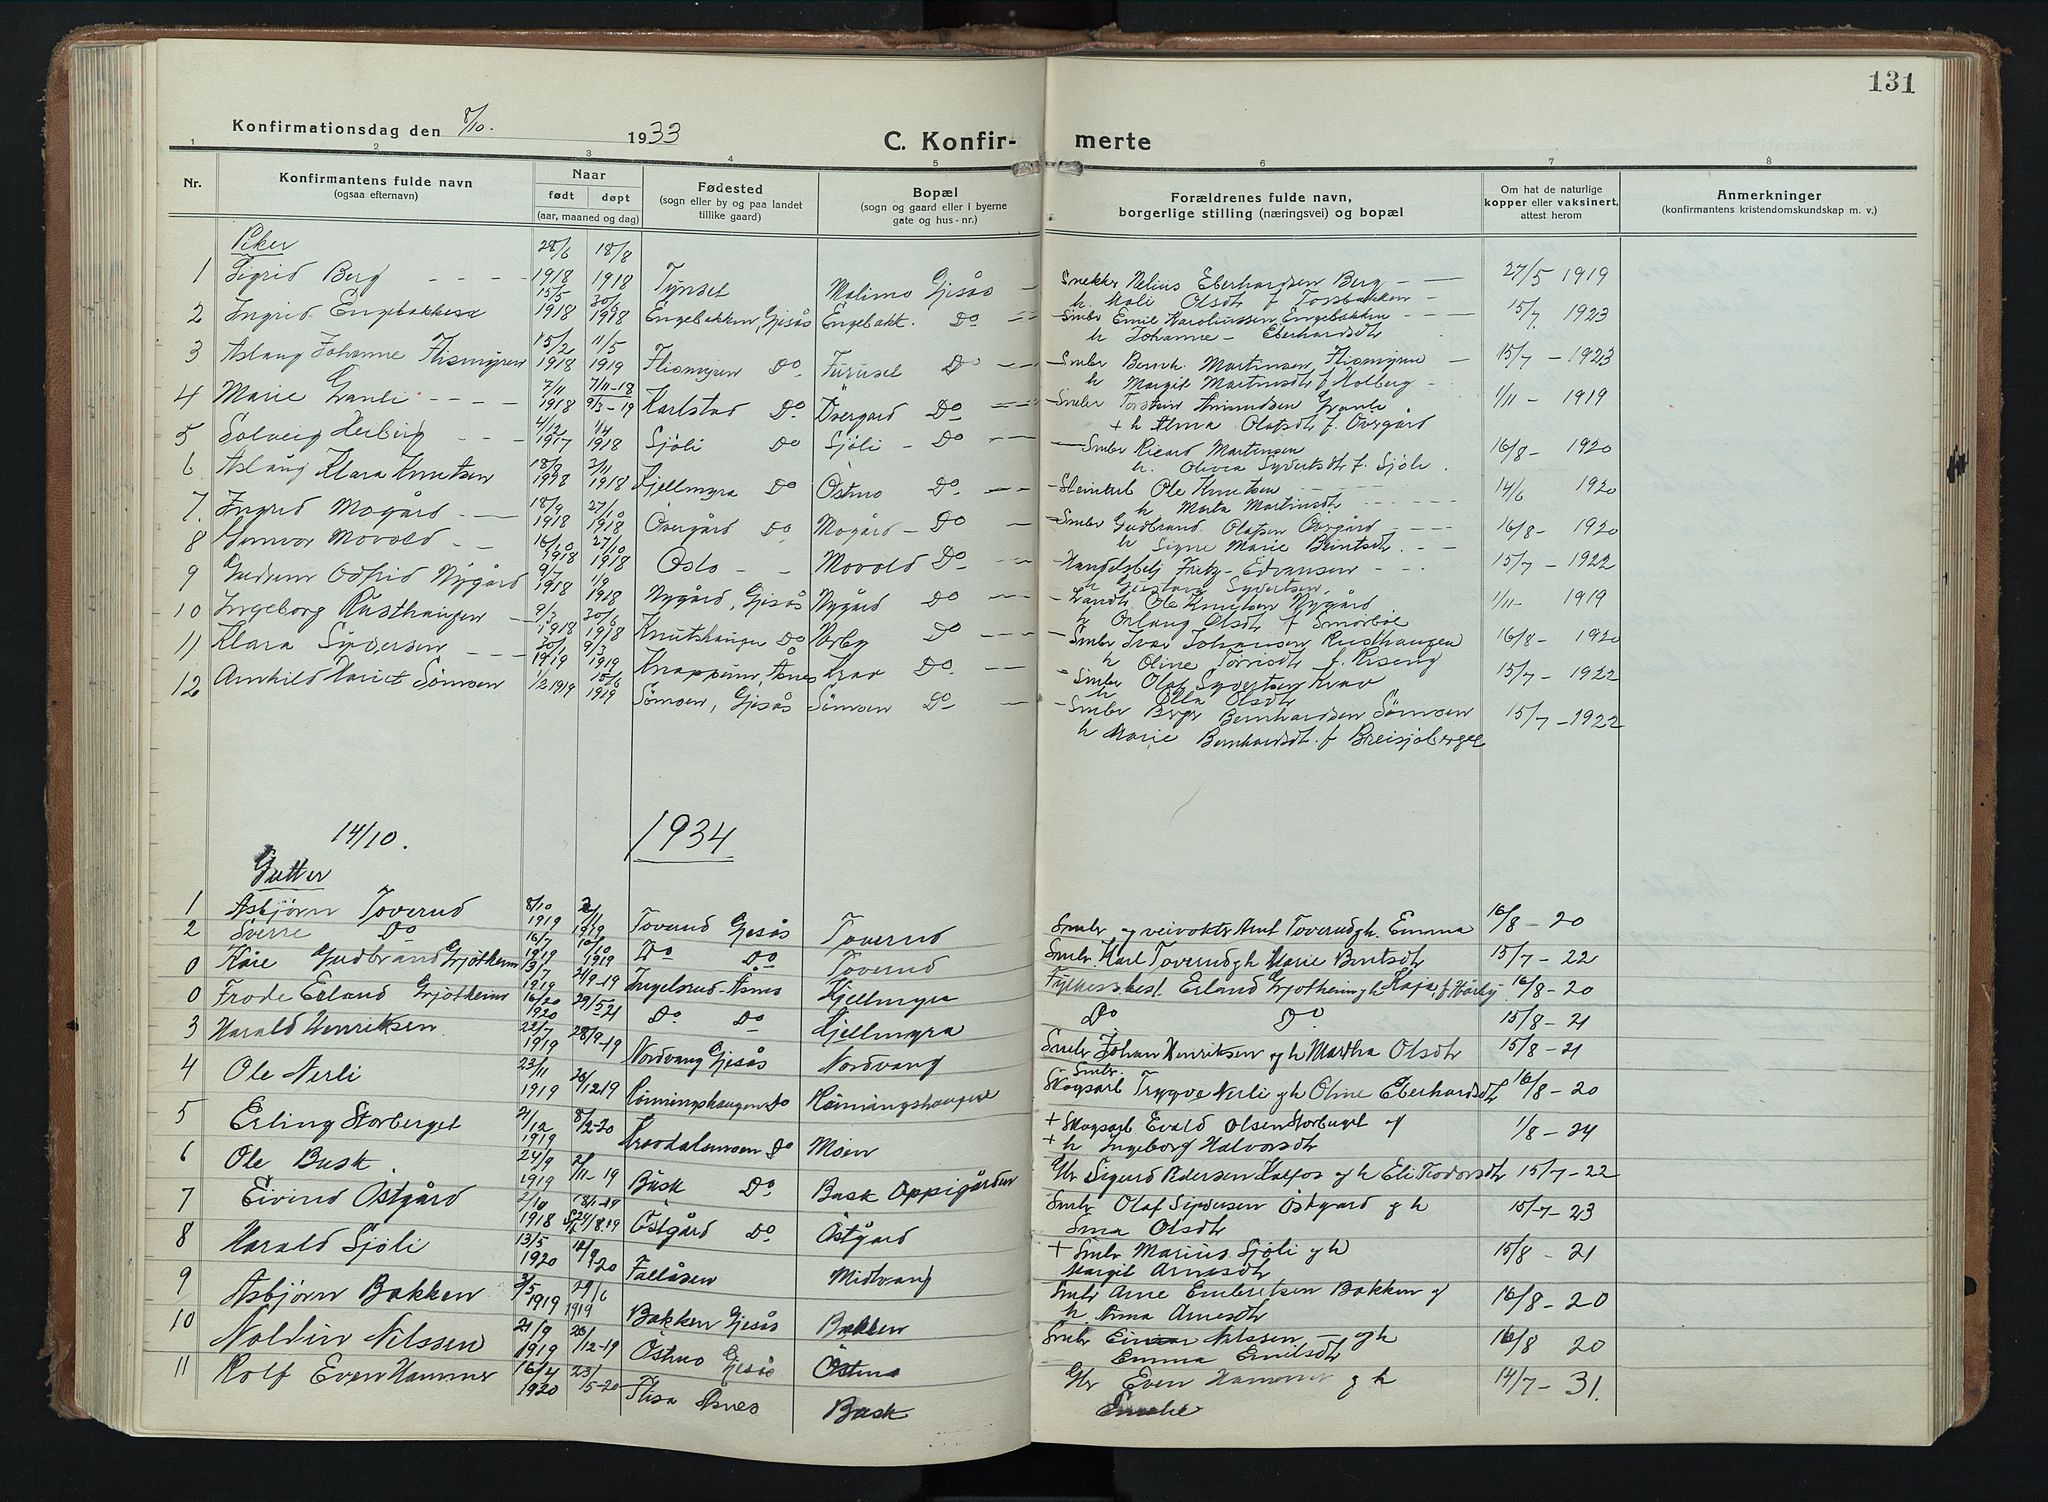 131
Konfirmationsdag den 8/10. 1933
C. Konfir- merte
1 2 3 4 5 6 7 8
Nr. Konfirmantens fulde navn (ogsaa efternavn) Naar født døpt (aar, maaned og dag) Fødested (sogn eller by og paa landet tillike gaard) Bopæl (sogn og gaard eller i byerne gate og hus-nr.) Forældrenes fulde navn, borgerlige stilling (næringsvei) og bopæl Om hat de naturlige kopper eller vaksinert, attest herom Anmerkninger (konfirmantens kristendomskundskap m. v.)
Piker
1 Sigrid Berg 28/6 1918 18/8 1918 Tynset Malimo Gjesås Snekker Nelius Eberhardsen Berg h. Mali Olsdtr f. Tossbakken 27/5 1919
2 Ingrid Engebakken 15/5 1918 30/6 1918 Engebakken, Gjesås Engebakk. Do Smbr Emil Karoliussen Engebakken h Johanne Eberhardsdtr 15/7 1923
3 Aslaug Johanne Flismyren 15/2 1918 11/5 1919 Flismyren Do Furuset Do Smbr Bernh. Martinsen Flismyren h Margit Martinsdtr f Holberg 15/7 - 1923
4 Marie Granli 7/11 1918 7/11-18 9/3-19 Karlstad Do Overgård Do Smbr Torstein Amundsen Granli + h Alma Olafsdtr f. Overgård 1/11 - 1919
5 Solveig Herberg 4/12 1917 1/4 1918 Sjöli Do Sjöli Do Smbr Ricard Martinsen h. Olivia Syvertsdtr f. Sjöli. 16/8 - 1920
6 Aslaug Klara Knutsen 18/8 1918 3/11 1918 Kjellmyra Do Östmo Do Steinarb Ole Knutsen h Marta Martinsdtr 14/6 1920
7. Ingrid Mogård 18/9 1918 27/10 1918 Overgård Do Mogård Do Smbr Gudbrand Olafsen Overgård h Signe Marie Berntsdtr. 16/8 - 1920
8 Gunvor Movold 16/10 1918 27/10 1918 Oslo Movold Do Handelsbetj Fritz Edvansen h Gustava Syvertsen, 15/7 - 1922
9 Gudrun Odfrid Nygård 9/7 1918 1/9 1918 Nygård, Gjesås Nygård Do Landh Ole Knutsen Nygård h Orlaug Olsdtr f Smörbøl 1/11 - 1919
10 Ingeborg Rusthaugen 9/3 1918 30/6 1918 Knutshaugen Do Verby Do Smbr Ivar Johansen Rusthaugen h Oline Torrisdtr f. Riseng 16/8 - 1920
11 Klara Syversen 20/1 1919 9/3 1919 Knappum, Åsnes Krav Do Smbr Olaf Syvertsen Krav h Olla Olsdtr 15/7 - 1922
12 Arnhild Harriet Sömoen 1/2 1919 15/6 1919 Sömoen, Gjesås Sömoen Do Smbr Birger Bernhardsen Sömoen h Marie Bernhardsdtr. f Breisjøberget 15/7 - 1922
14/10. 1934
Gutter
1 Asbjørn Toverud 8/10 1919 2/11 1919 Toverud Gjesås Toverud Smbr og veivokter Arnt Toverud gh. Emma 16/8 - 20
2 Sverre Do 16/7 1919 10/10 1919 Do Do Toverud Smbr. Karl Toverud gh Marie Berntsdtr 15/7 - 22
0 Kåre Gudbrand Gjötheim 13/7 1919 21/9-19 Ingelsrud-Åsnes Kjellmyra Fylkesskest Erland Gjötheim gh Kaja f Hårby 16/8 - 20
0 Frode Erland Gjötheim 16/20 1920 29/5 21 Do Do Kjellmyra Do Do 15/8 - 21
3 Harald Henriksen 22/7 1919 28/9-19 Nordvang Gjesås Nordvang Smbr Johan Henriksen gh Martha Olsdtr 15/8 - 21
4 Ole Nerli 23/11 1919 26/12-19 Rönningshaugen Do Rönningshaugen Smbr. Skogsarb Trygve Nerli gh Oline Eberhardsdtr 16/8 - 20
5 Erling Storberget 21/12 1919 8/2-20 Kravdalsmoen Do Moen + Skogsarb Evald Olsen Storberget og + h Ingeborg Halvorsdtr 1/8 - 24
6 Ole Busk. 24/9 1919 2/11-19 Busk Do. Busk Oppigården Gbr Sigurd Pedersen Kalfos gh Eli Teodorsdtr 15/7 - 22
7 Eivind Östgård 2/10 1918 18/1-19 24/8-19 Östgård Do. Östgård Smbr Olaf Syversen Östgård gh Sma Olsdtr 15/7 - 23
8 Harald Sjöli 13/5 1920 12/9 -20 Fallåsen Midtvang + Smbr Marius Sjöli gh Margit Arnesdtr 15/8 - 21
9 Asbjörn Bakken 3/5 1919 29/6 1919 Bakken Gjesås Bakken Smbr Arne Embretsen Bakken og h. Anna Arnesdtr 16/8 - 20
10 Noldin Nilssen 21/9 1919 26/12-19 Östmo Gjesås Östmo Smbr Einar Nilssen gh Emma Emilsdtr 16/8 20
11 Rolf Even Hammer 16/4 1920 23/5-20 Flisa Åsnes Busk Gbr Even Hammer gh 14/7 - 31.